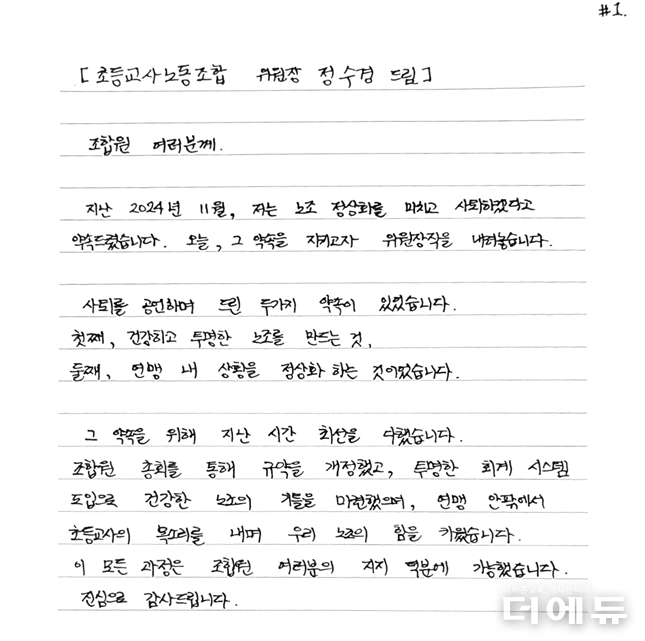 #1.
[초등교사노동조합 위원장 정수경 드림]
조합원 여러분께.
지난 2024년 11월, 저는 노조 정상화를 마치고 사퇴하겠다고
약속드렸습니다. 오늘, 그 약속을 지키고자 위원장직을 내려놓습니다.
사퇴를 공언하며 드린 두가지 약속이 있었습니다.
첫째, 건강하고 투명한 노조를 만드는 것,
둘째, 연맹 내 상황을 정상화 하는 것이었습니다.
그 약속을 위해 지난 시간 최선을 다했습니다.
조합원 총회를 통해 규약을 개정했고, 투명한 회계 시스템
도입으로 건강한 노조의 기틀을 마련했으며, 연맹 안팎에서
초등교사의 목소리를 내며 우리 노조의 힘을 키웠습니다.
이 모든 과정은 조합원 여러분의 지지 덕분에 가능했습니다.
진심으로 감사드립니다.
더에듀